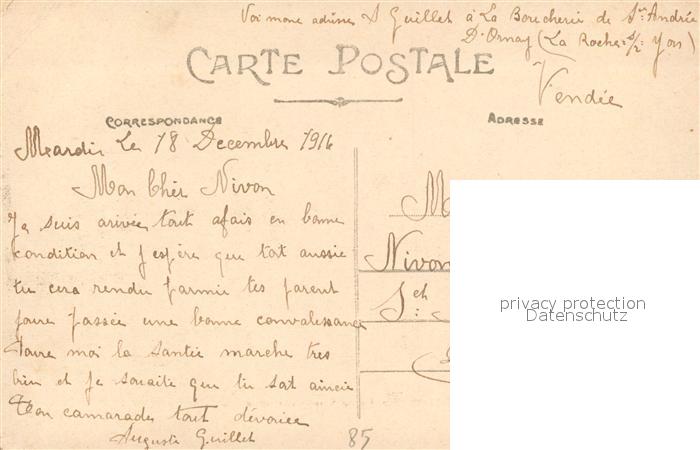 Voi mone adrises A Guillet à La Boucherie de St André
D'Ornay (La Roche s/: Yon)
Vendée
CARTE POSTALE
CORRESPONDANCE
ADRESSE
Meardi Le 18 Decembre 1916
Mon Cher Nivon
Je suis arivée tout afais en bonne
condition et j'espère que toi aussie
tu cera rendu parmie tes parent
pour passée une bonne convalessance
Poure moi la santée marche tres
bien et je souaite que tu soit aincie
Ton camarade tout dévouée
Auguste Guillet
85
M
Nivon
St
privacy protection
Datenschutz